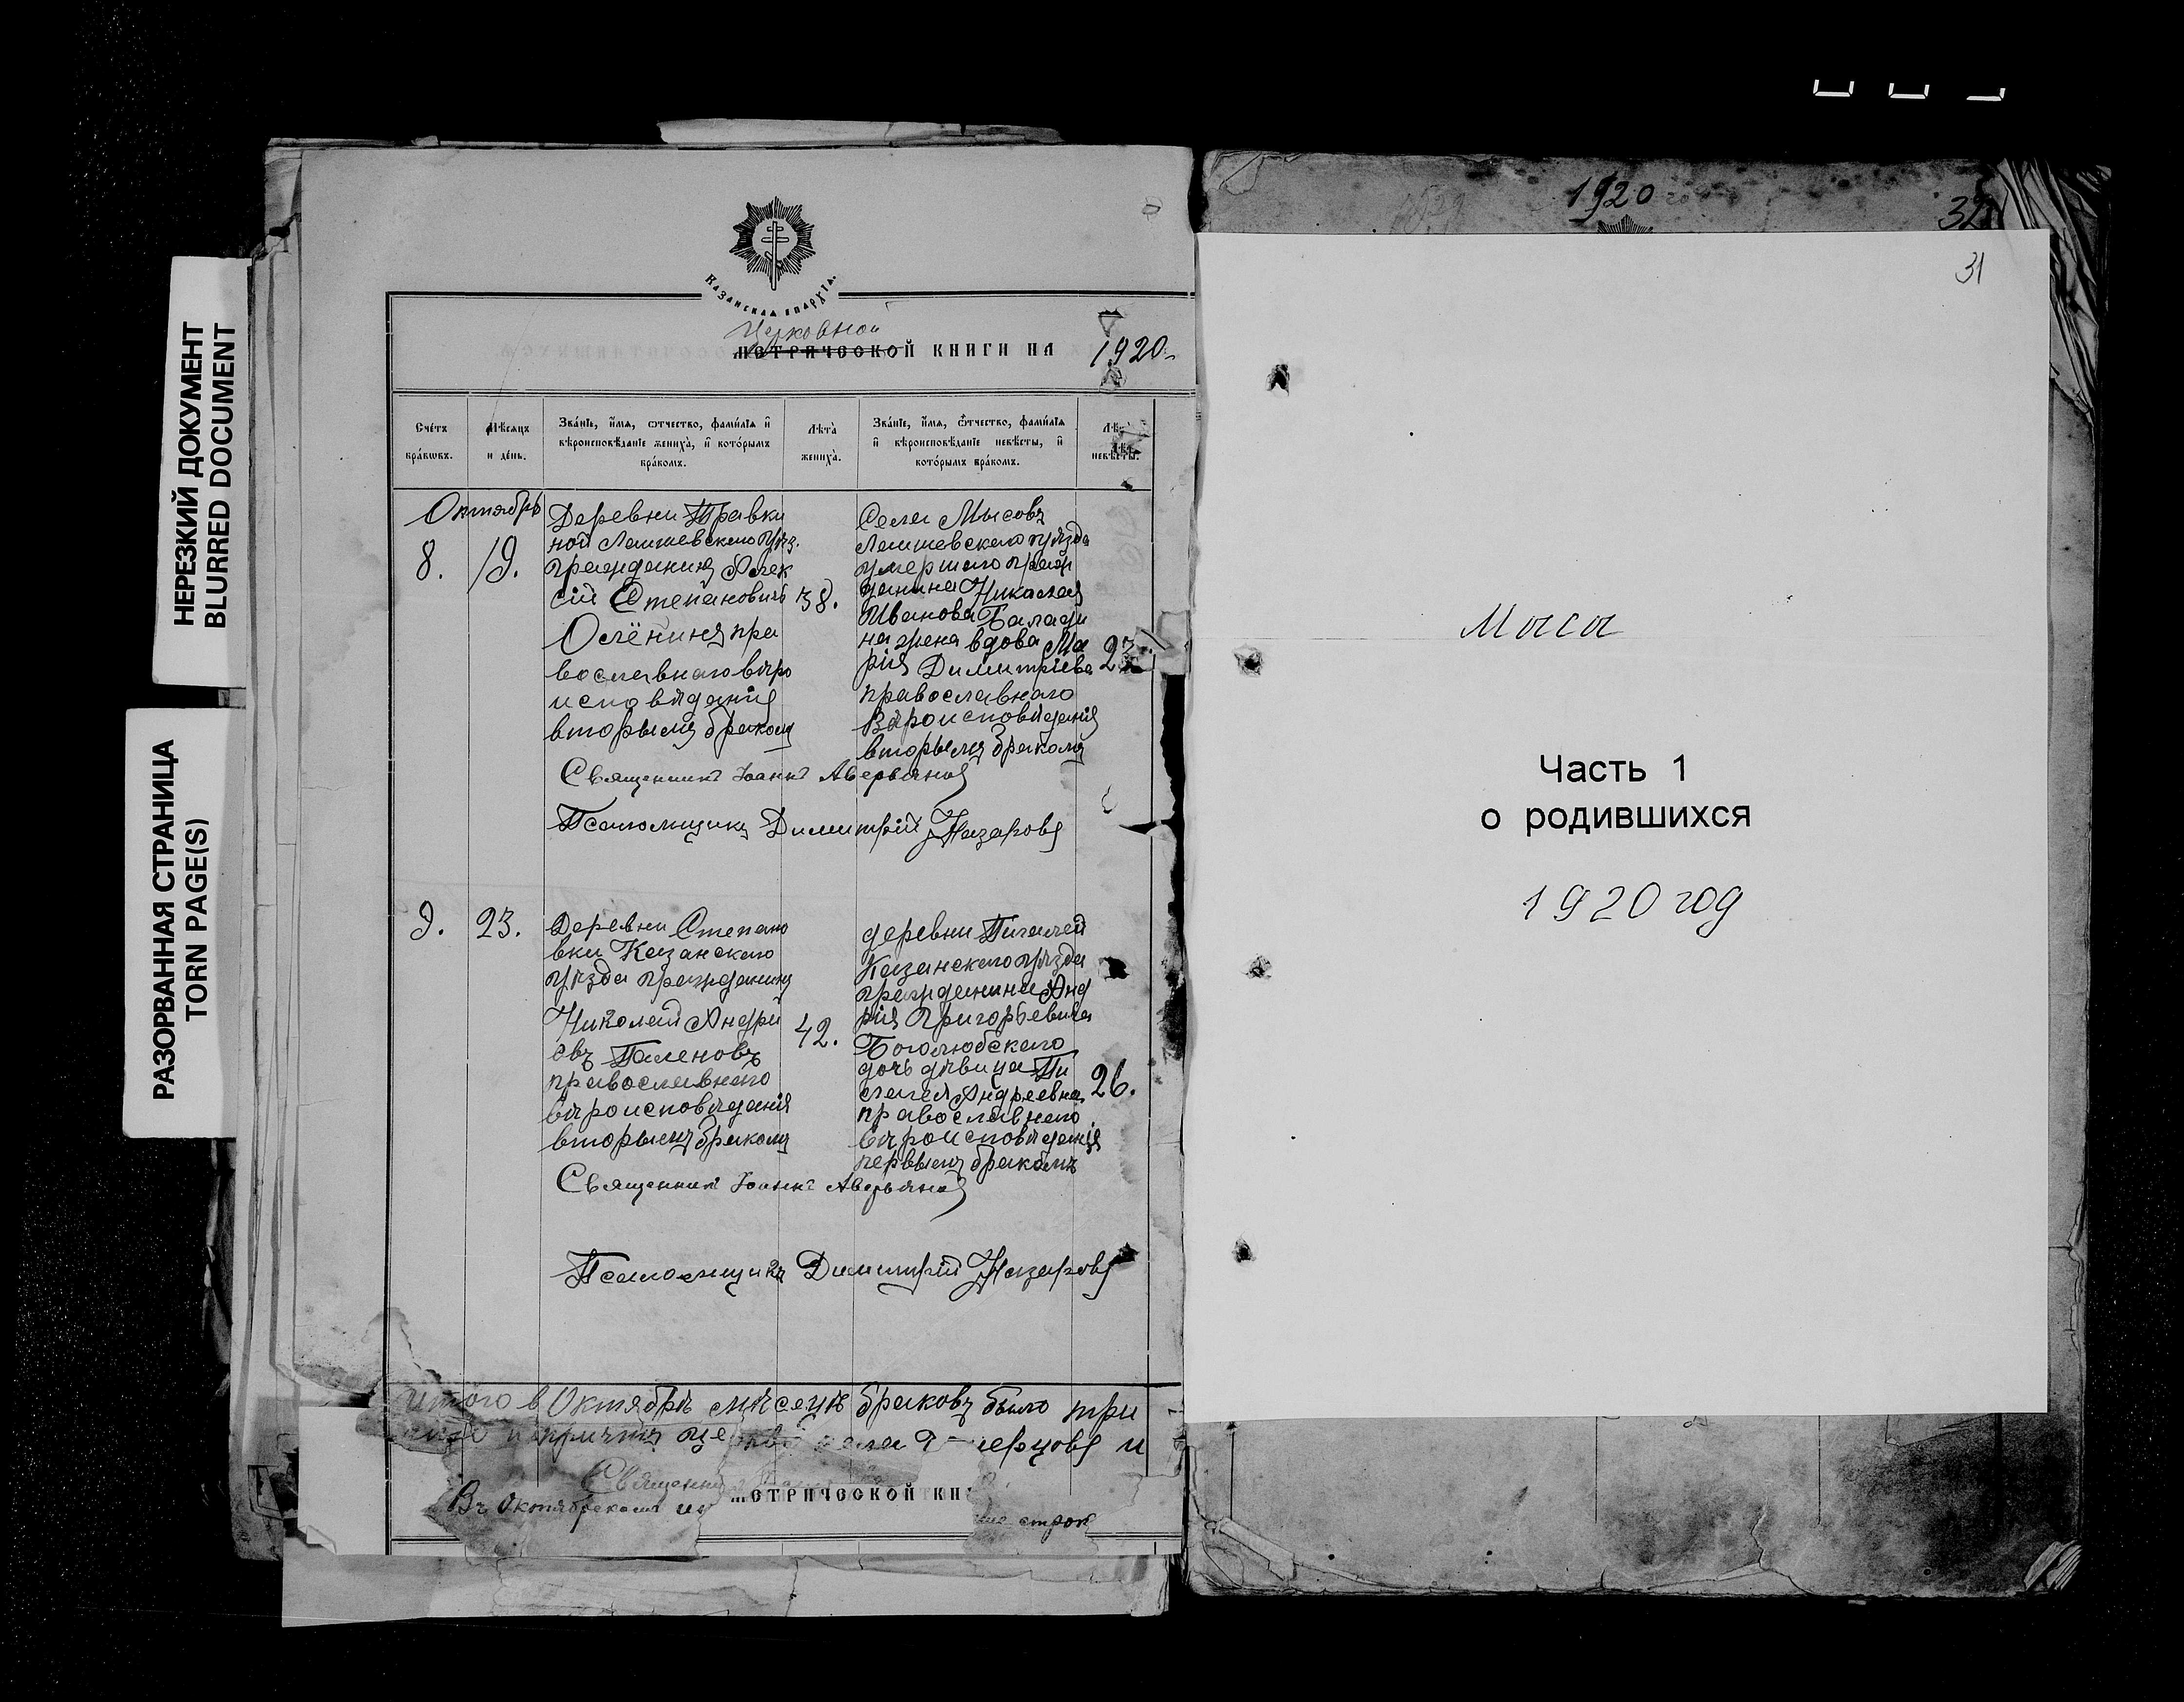 НЕРЕЗКИЙ ДОКУМЕНТ
BLURRED DOCUMENT
РАЗОРВАННАЯ СТРАНИЦА
TORN PAGE(S)
Казанская епархія.
Церковной
метрической книги на 1920
Счетъ браковъ.
Мѣсяцъ и день.
Званіе, имя, отчество, фамилія и
вѣроисповѣданіе жениха, и которымъ
бракомъ.
Лѣта
жениха.
Званіе, имя, отчество, фамилія
и вѣроисповѣданіе невѣсты, и
которымъ бракомъ.
невѣсты.
Октябрь
8. 19.
Деревни Травки
ной Лаишевскаго уѣз.
гражданинъ Алек
сій Степановичъ 38.
Олёнинъ пра
вославнаго вѣро
исповѣданія
вторымъ бракомъ
Села Мысовъ
Лаишевскаго уѣзда
умершаго граж
данина Николая
Иванова Балади
на жена вдова Ма
рія Димитріева 23.
православнаго
вѣроисповѣданія
вторымъ бракомъ
Священникъ Іоаннъ Аверьянов
Псаломщикъ Димитрій Назаровъ
9. 23.
Деревни Степано
вки Казанскаго
уѣзда гражданинъ
Николай Андрі
евъ Паленовъ 42.
православнаго
вѣроисповѣданія
вторымъ бракомъ
деревни Пигалей
Казанскаго уѣзда
гражданина Анд
рія Григорьевича
Боголюбскаго
дочь дѣвица Пи
лагея Андреевна 26.
православнаго
вѣроисповѣданія
первымъ бракомъ
Священникъ Іоаннъ Аверьянов
Псаломщикъ Димитрій Назаровъ
Итого в Октябрѣ мѣсяцѣ браковъ было три
причтъ села и
Священни
Въ Октябрскомъ
метрической кни
строк
1920
32
31
Мыса
Часть 1
о родившихся
1920 год